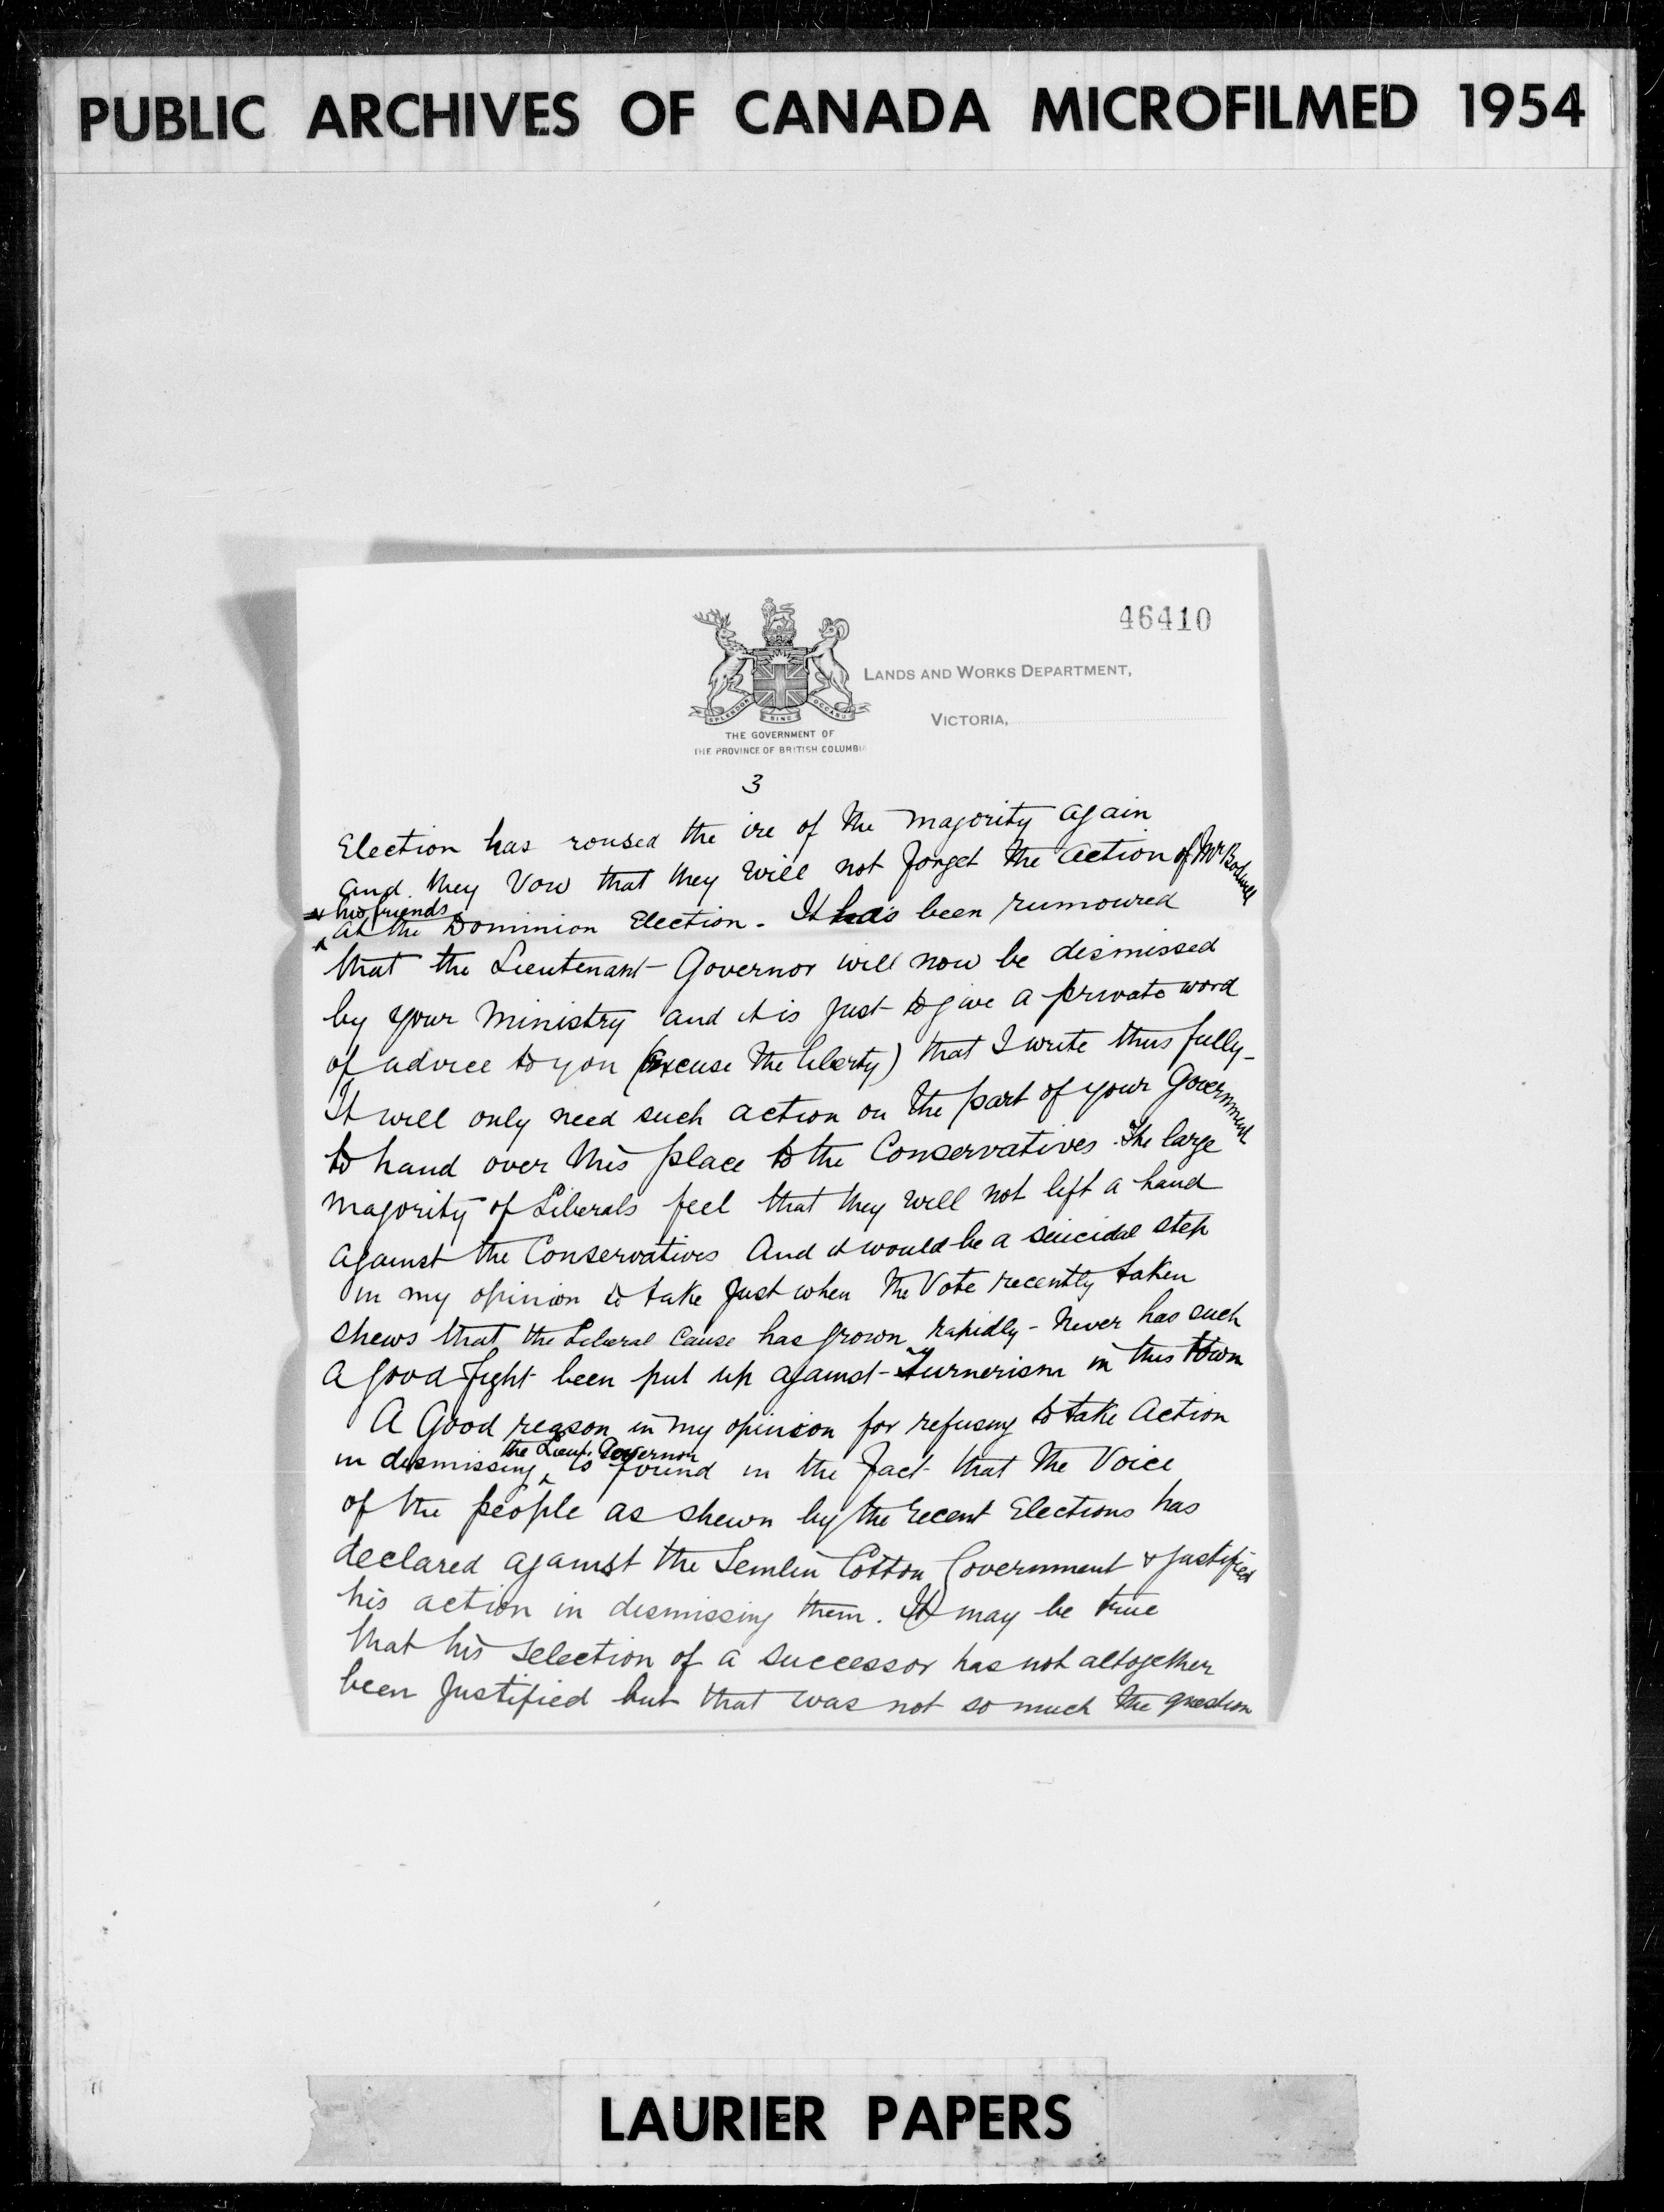 PUBLIC ARCHIVES OF CANADA MICROFILMED 1954
46410
LANDS AND WORKS DEPARTMENT,
VICTORIA,
SPLENDOR SINE OCCASU
THE GOVERNMENT OF
THE PROVINCE OF BRITISH COLUMBIA
3
Election has roused the ire of the majority again
and they vow that they will not forget the action of Mr Bodwell
& his friends
at the Dominion Election - It has been rumoured
that the Lieutenant-Governor will now be dismissed
by your Ministry and it is just to give a private word
of advice to you (excuse the liberty) that I write thus fully -
It will only need such action on the part of your Government
to hand over this place to the Conservatives. The large
majority of Liberals feel that they will not lift a hand
against the Conservatives And it would be a suicidal step
in my opinion to take just when the Vote recently taken
shews that the Liberal Cause has grown rapidly - Never has such
a good fight been put up against - Turnerism in this town
A Good reason in my opinion for refusing to take Action
the Lieut. Governor
in dismissing is found in the fact that the Voice
of the people as shewn by the recent Elections has
declared against the Semlin Cotton Government & justified
his action in dismissing them. It may be true
that his selection of a successor has not altogether
been justified but that was not so much the question
LAURIER PAPERS